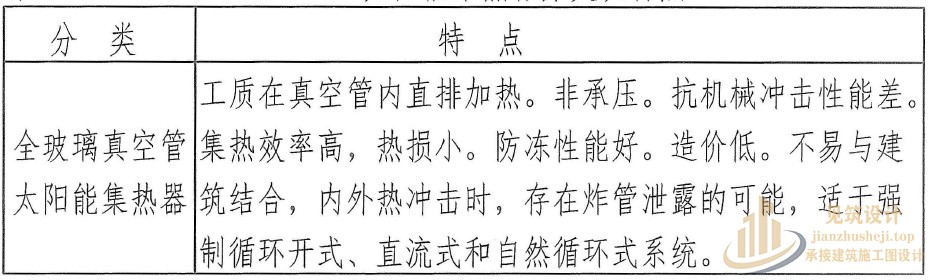 分 类
特 点
全玻璃真空管
太阳能集热器
工质在真空管内直排加热。非承压。抗机械冲击性能差。
集热效率高，热损小。防冻性能好。造价低。不易与建
筑结合，内外热冲击时，存在炸管泄露的可能，适于强
制循环开式、直流式和自然循环式系统。
见筑设计
jianzhusheji.top
承接建筑施工图设计